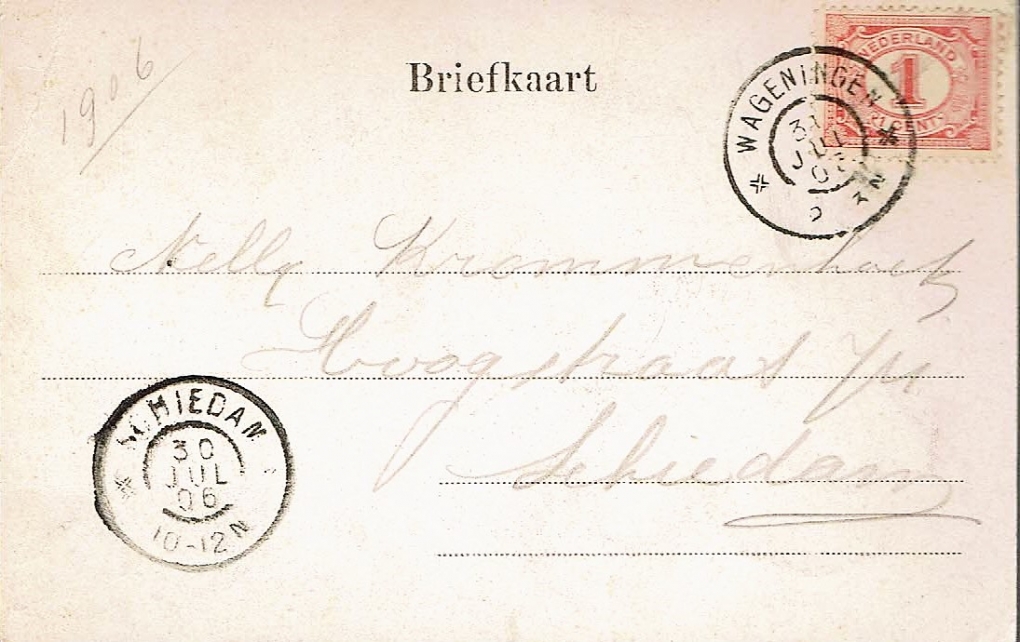 1906
Briefkaart
NEDERLAND
1
CENT
WAGENINGEN
JUL
Nelly
Hoogstraat
Schiedam
SCHIEDAM
30
JUL
06
10-12N